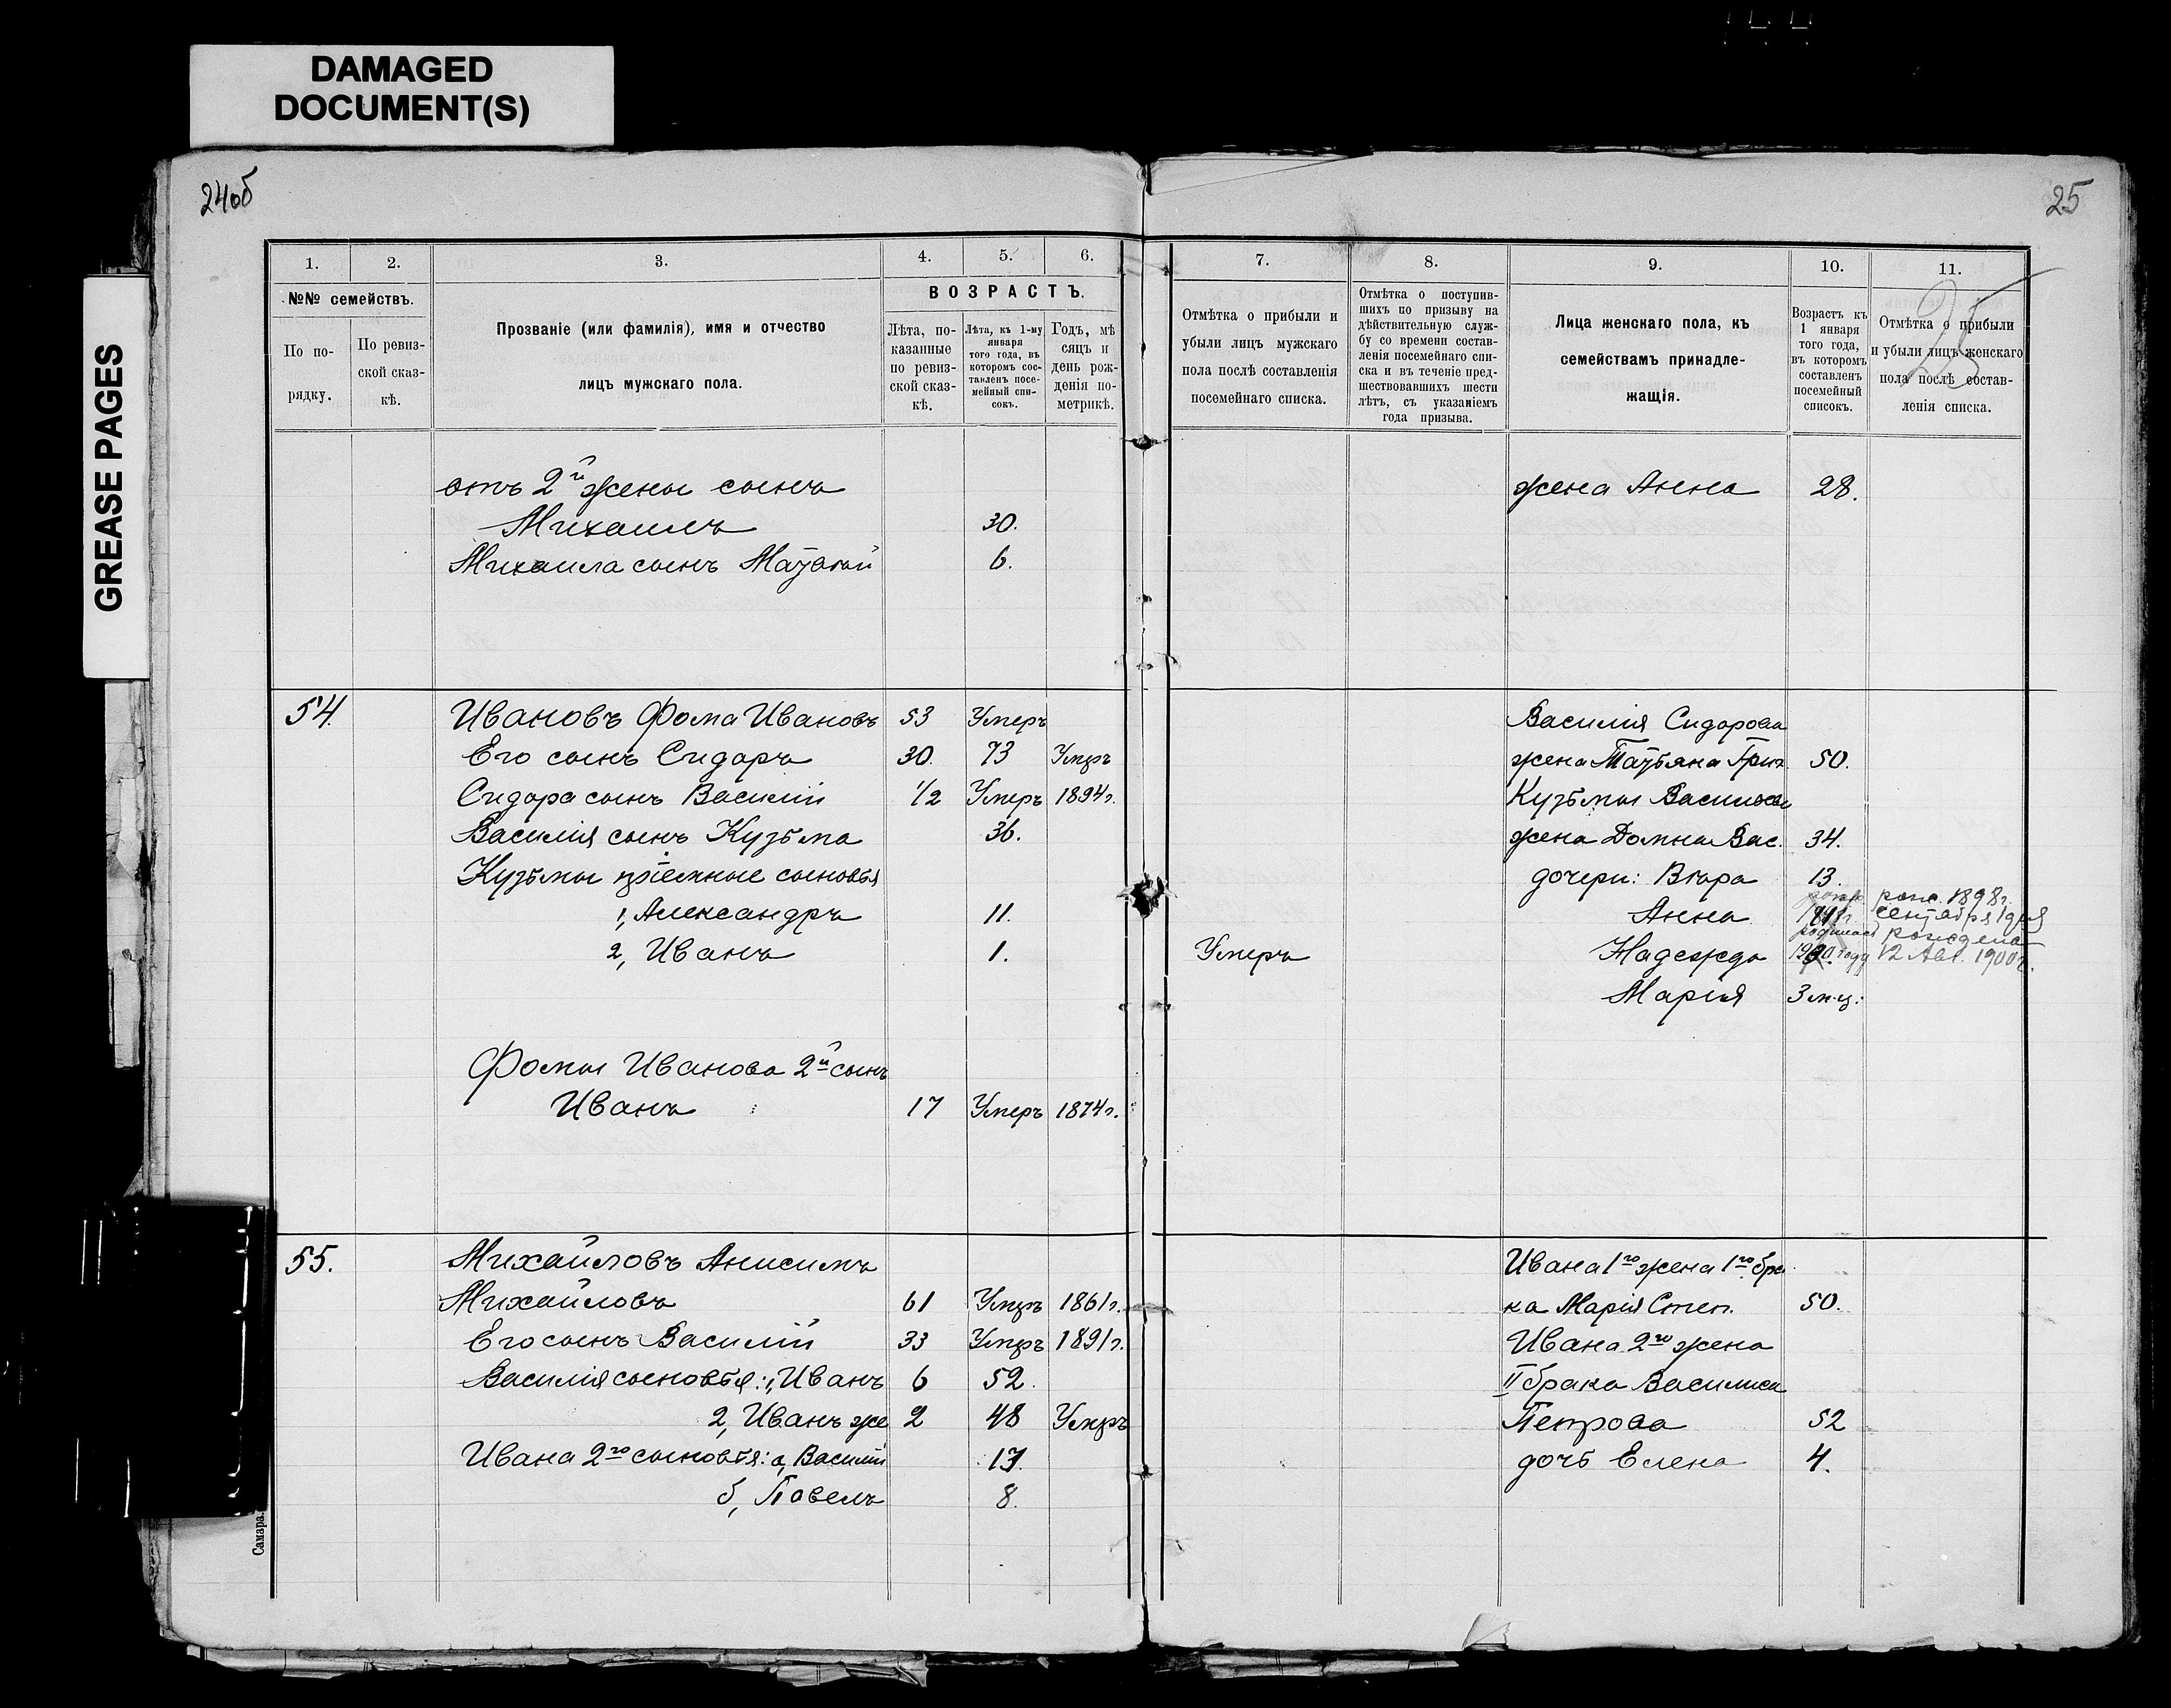 DAMAGED
DOCUMENT(S)
GREASE PAGES
24об
25
1.
2.
3.
4.
5.
6.
№№ семействъ.
По по-
рядку.
По ревиз-
ской сказ-
кѣ.
Прозваніе (или фамилія), имя и отчество
лицъ мужскаго пола.
ВОЗРАСТЪ.
Лѣта, по-
казанные
по ревиз-
ской сказ-
кѣ.
Лѣта, къ 1-му
января
того года, въ
которомъ сос-
тавленъ посе-
мейный спи-
сокъ.
Годъ, мѣ
сяцъ и
день рож-
денія по-
метрикѣ.
7.
8.
9.
10.
11.
Отмѣтка о прибыли и
убыли лицъ мужскаго
пола послѣ составленія
посемейнаго списка.
Отмѣтка о поступив-
шихъ по призыву на
дѣйствительную служ-
бу со времени состав-
ленія посемейнаго спи-
ска и въ теченіе пред-
шествовавшихъ шести
лѣтъ, съ указаніемъ
года призыва.
Лица женскаго пола, къ
семействамъ принадле-
жащія.
Возрастъ къ
1 января
того года,
въ которомъ
составленъ
посемейный
списокъ.
Отмѣтка о прибыли
и убыли лицъ женскаго
пола послѣ состав-
ленія списка.
25
отъ 2й жены сынъ
Михаилъ 30.
Михаила сынъ Матвѣй 6.
жена Анна 28.
54. Ивановъ Фома Ивановъ 53 Умеръ
Его сынъ Сидоръ 30. 73 Умеръ
Сидора сынъ Василій 1/2 Умеръ 1894г.
Василія сынъ Кузьма 36.
Кузьмы пріемные сыновья
1, Александръ 11.
2, Иванъ 1. Умеръ
Фомы Иванова 2й сынъ
Иванъ 17 Умеръ 1874г.
Василія Сидорова
жена Татьяна Григ. 50.
Кузьмы Васильева
жена Домна Вас. 34.
дочери: Вѣра 13.
Анна рож. 1898г.
сентября 1 дня
Надежда родилась 1900 году рождена
12 Авг. 1900г.
Марія 3 м-ц.
55. Михайловъ Анисимъ
Михайловъ 61 Умеръ 1861г.
Его сынъ Василій 33 Умеръ 1891г.
Василія сыновья: 1, Иванъ 6 52.
2, Иванъ же 2 48 Умеръ
Ивана 2го сыновья: а, Василій 17.
б, Павелъ 8.
Ивана 1го жена 1го бра
ка Марія Степ. 50.
Ивана 2го жена
II брака Василиса
Петрова 52
дочь Елена 4.
Самара.